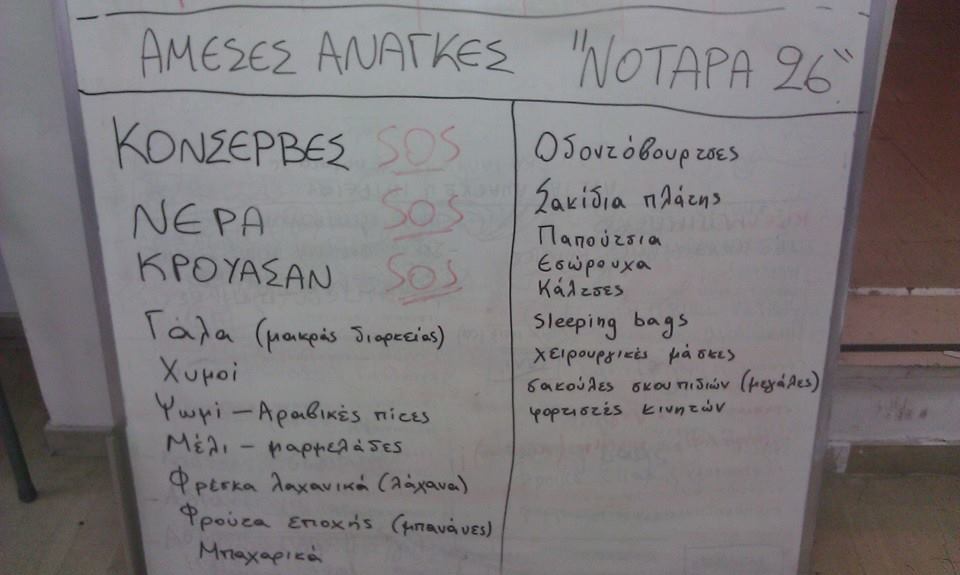 ΑΜΕΣΕΣ ΑΝΑΓΚΕΣ "ΝΟΤΑΡΑ 26"
ΚΟΝΣΕΡΒΕΣ SOS
ΝΕΡΑ SOS
ΚΡΟΥΑΣΑΝ SOS
Γάλα (μακράς διαρκείας)
Χυμοί
Ψωμί – Αραβικές πίτες
Μέλι – μαρμελάδες
Φρέσκα λαχανικά (λάχανα)
Φρούτα εποχής (μπανάνες)
Μπαχαρικά
Οδοντόβουρτσες
Σακίδια πλάτης
Παπούτσια
Εσώρουχα
Κάλτσες
sleeping bags
χειρουργικές μάσκες
σακούλες σκουπιδιών (μεγάλες)
φορτιστές κινητών